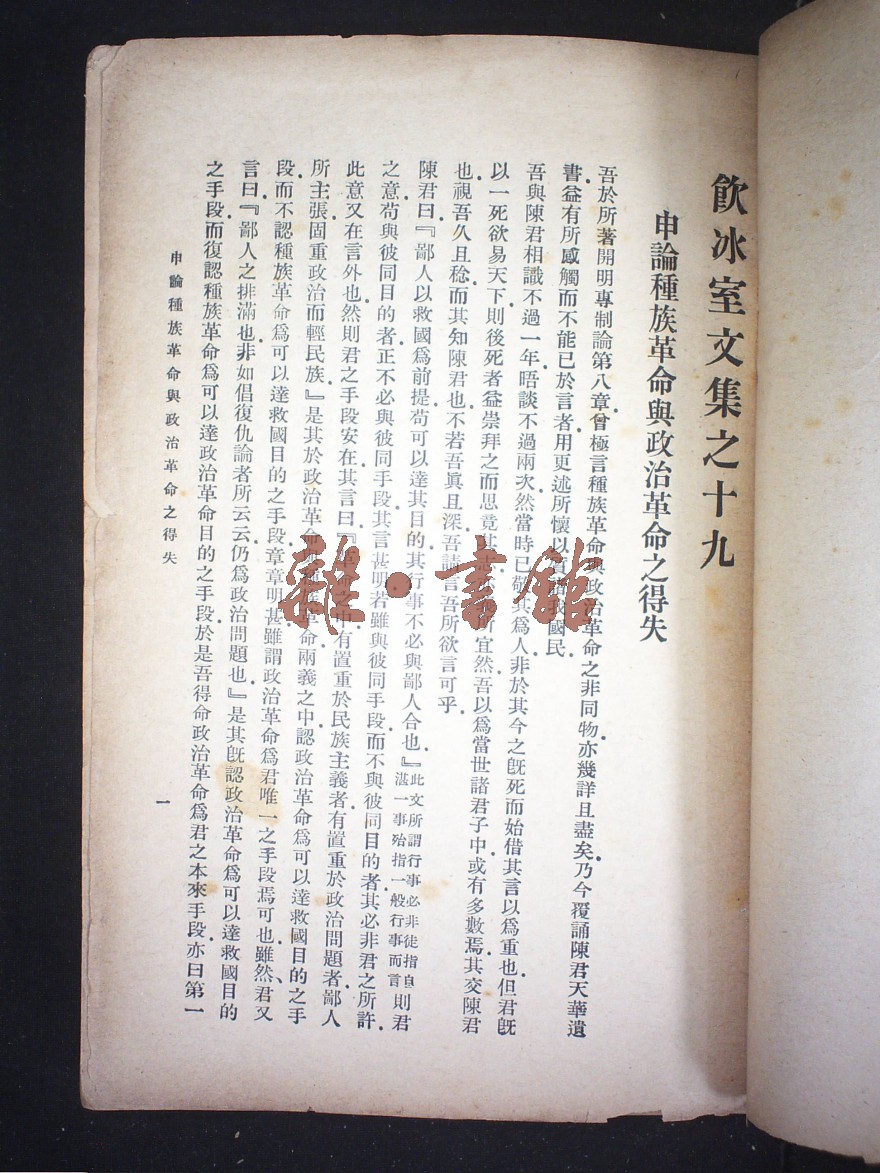 飲冰室文集之十九
申論種族革命與政治革命之得失
吾於所著開明專制論第八章曾極言種族革命與政治革命之非同物亦幾詳且盡矣乃今覆誦陳君天華遺
書益有所感觸而不能已於言者用更述所懷以質諸我國民
吾與陳君相識不過一年晤談不過兩次然當時已敬其為人非於其今之既死而始借其言以為重也但君既
以一死欲易天下則後死者益崇拜之而思竟其志所宜然吾以為當世諸君子中或有多數焉其交陳君
也視吾久且稔而其知陳君也不若吾眞且深吾請言吾所欲言可乎
陳君曰『鄙人以救國為前提苟可以達其目的其行事不必與鄙人合也』此文所謂行事必非徒指自湛一事殆指一般行事而言則君
之意苟與彼同目的者正不必與彼同手段其言甚明若雖與彼同手段而不與彼同目的者其必非君之所許
此意又在言外也然則君之手段安在其言曰『革命之中有置重於民族主義者有置重於政治問題者鄙人
所主張固重政治而輕民族』是其於政治革命與種族革命兩義之中認政治革命為可以達救國目的之手
段而不認種族革命為可以達救國目的之手段章章明甚雖謂政治革命為君唯一之手段焉可也雖然、君又
言曰『鄙人之排滿也非如倡復仇論者所云云仍為政治問題也』是其既認政治革命為可以達救國目的
之手段而復認種族革命為可以達政治革命目的之手段於是吾得命政治革命為君之本來手段亦曰第一
申論種族革命與政治革命之得失
一
雜·書館